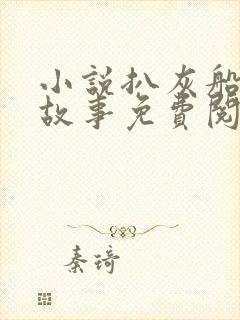 小說扒灰船
故事免費閱
秦琦